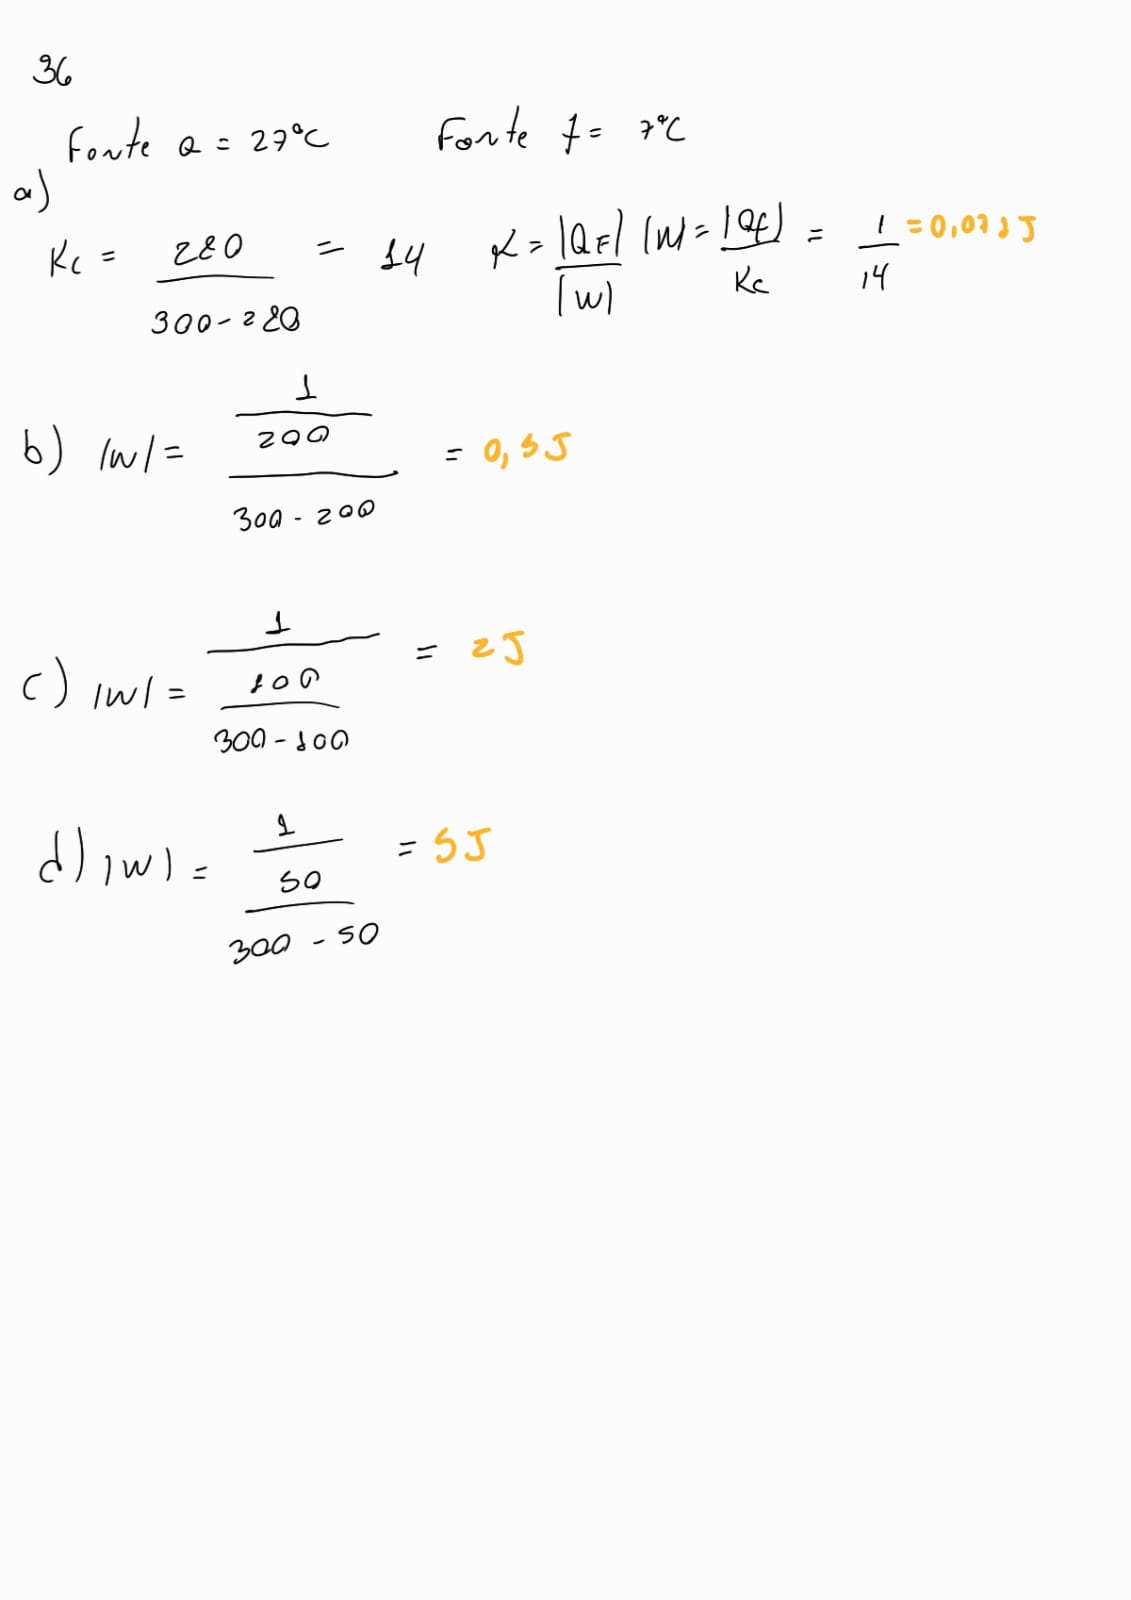 36
Fonte Q = 27°C Fonte f = 7°C
a)
Kc = 280 / 300 - 280 = 14 K = |QF| / |W| |W| = |Qf| / Kc = 1 / 14 = 0,071 J
b) |W| = 1 / 200 / 300 - 200 = 0,5 J
c) |W| = 1 / 100 / 300 - 100 = 2 J
d) |W| = 1 / 50 / 300 - 50 = 5 J